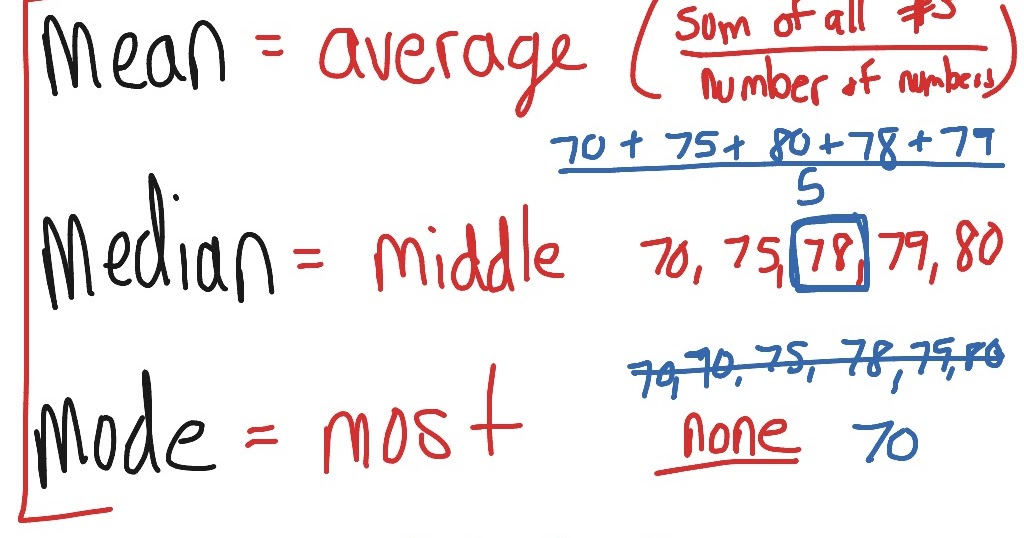 Mean = average (sum of all #s
number of numbers)
70 + 75 + 80 + 78 + 79
5
Median = middle 70, 75, 78, 79, 80
70, 70, 75, 78, 79, 80
Mode = most none 70